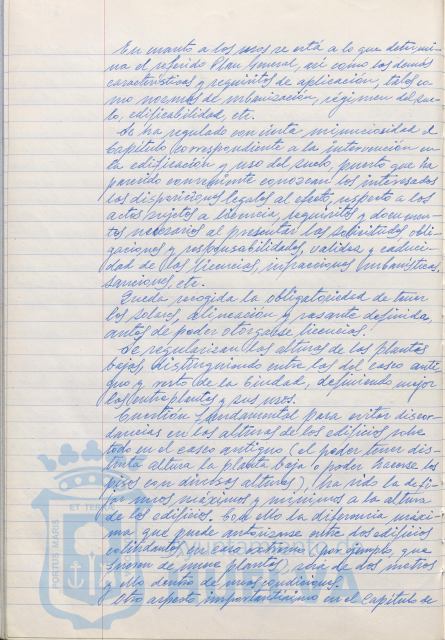 En cuanto a los usos se está a lo que determi-
na el referido Plan General, así como las demás
características y requisitos de aplicación, tales co-
mo normas de urbanización, régimen del sue-
lo, edificabilidad, etc.
Se ha regulado con cierta minuciosidad el
Capítulo correspondiente a la intervención en
la edificación y uso del suelo, puesto que ha
parecido conveniente conozcan los interesados
las disposiciones legales al efecto, respecto a los
actos sujetos a licencia, requisitos y documen-
tos necesarios al presentar las solicitudes, obli-
gaciones y responsabilidades, validez y caduci-
dad de las licencias, infracciones urbanísticas,
sanciones, etc.
Queda recogida la obligatoriedad de tener
los solares, alineación y rasante definida,
antes de poder otorgarse licencias.
Se regularizan las alturas de las plantas
bajas, distinguiendo entre las del casco anti-
guo y resto de la Ciudad, definiendo mejor
las entreplantas y sus usos.
Cuestión fundamental para evitar discor-
dancias en las alturas de los edificios, sobre
todo en el casco antiguo (al poder tener dis-
tinta altura la planta baja o poder hacerse los
pisos con diversas alturas), ha sido la de fi-
jar unos máximos y mínimos a la altura
de los edificios. Con ello la diferencia máxi-
ma que puede autorizarse entre dos edificios
colindantes, en caso extremo (por ejemplo, que
fuesen de nueve plantas), será de dos metros
y ello dentro de unas condiciones.
Otro aspecto importantísimo en el Capítulo de
PORTUS MARIS
ET TERRA